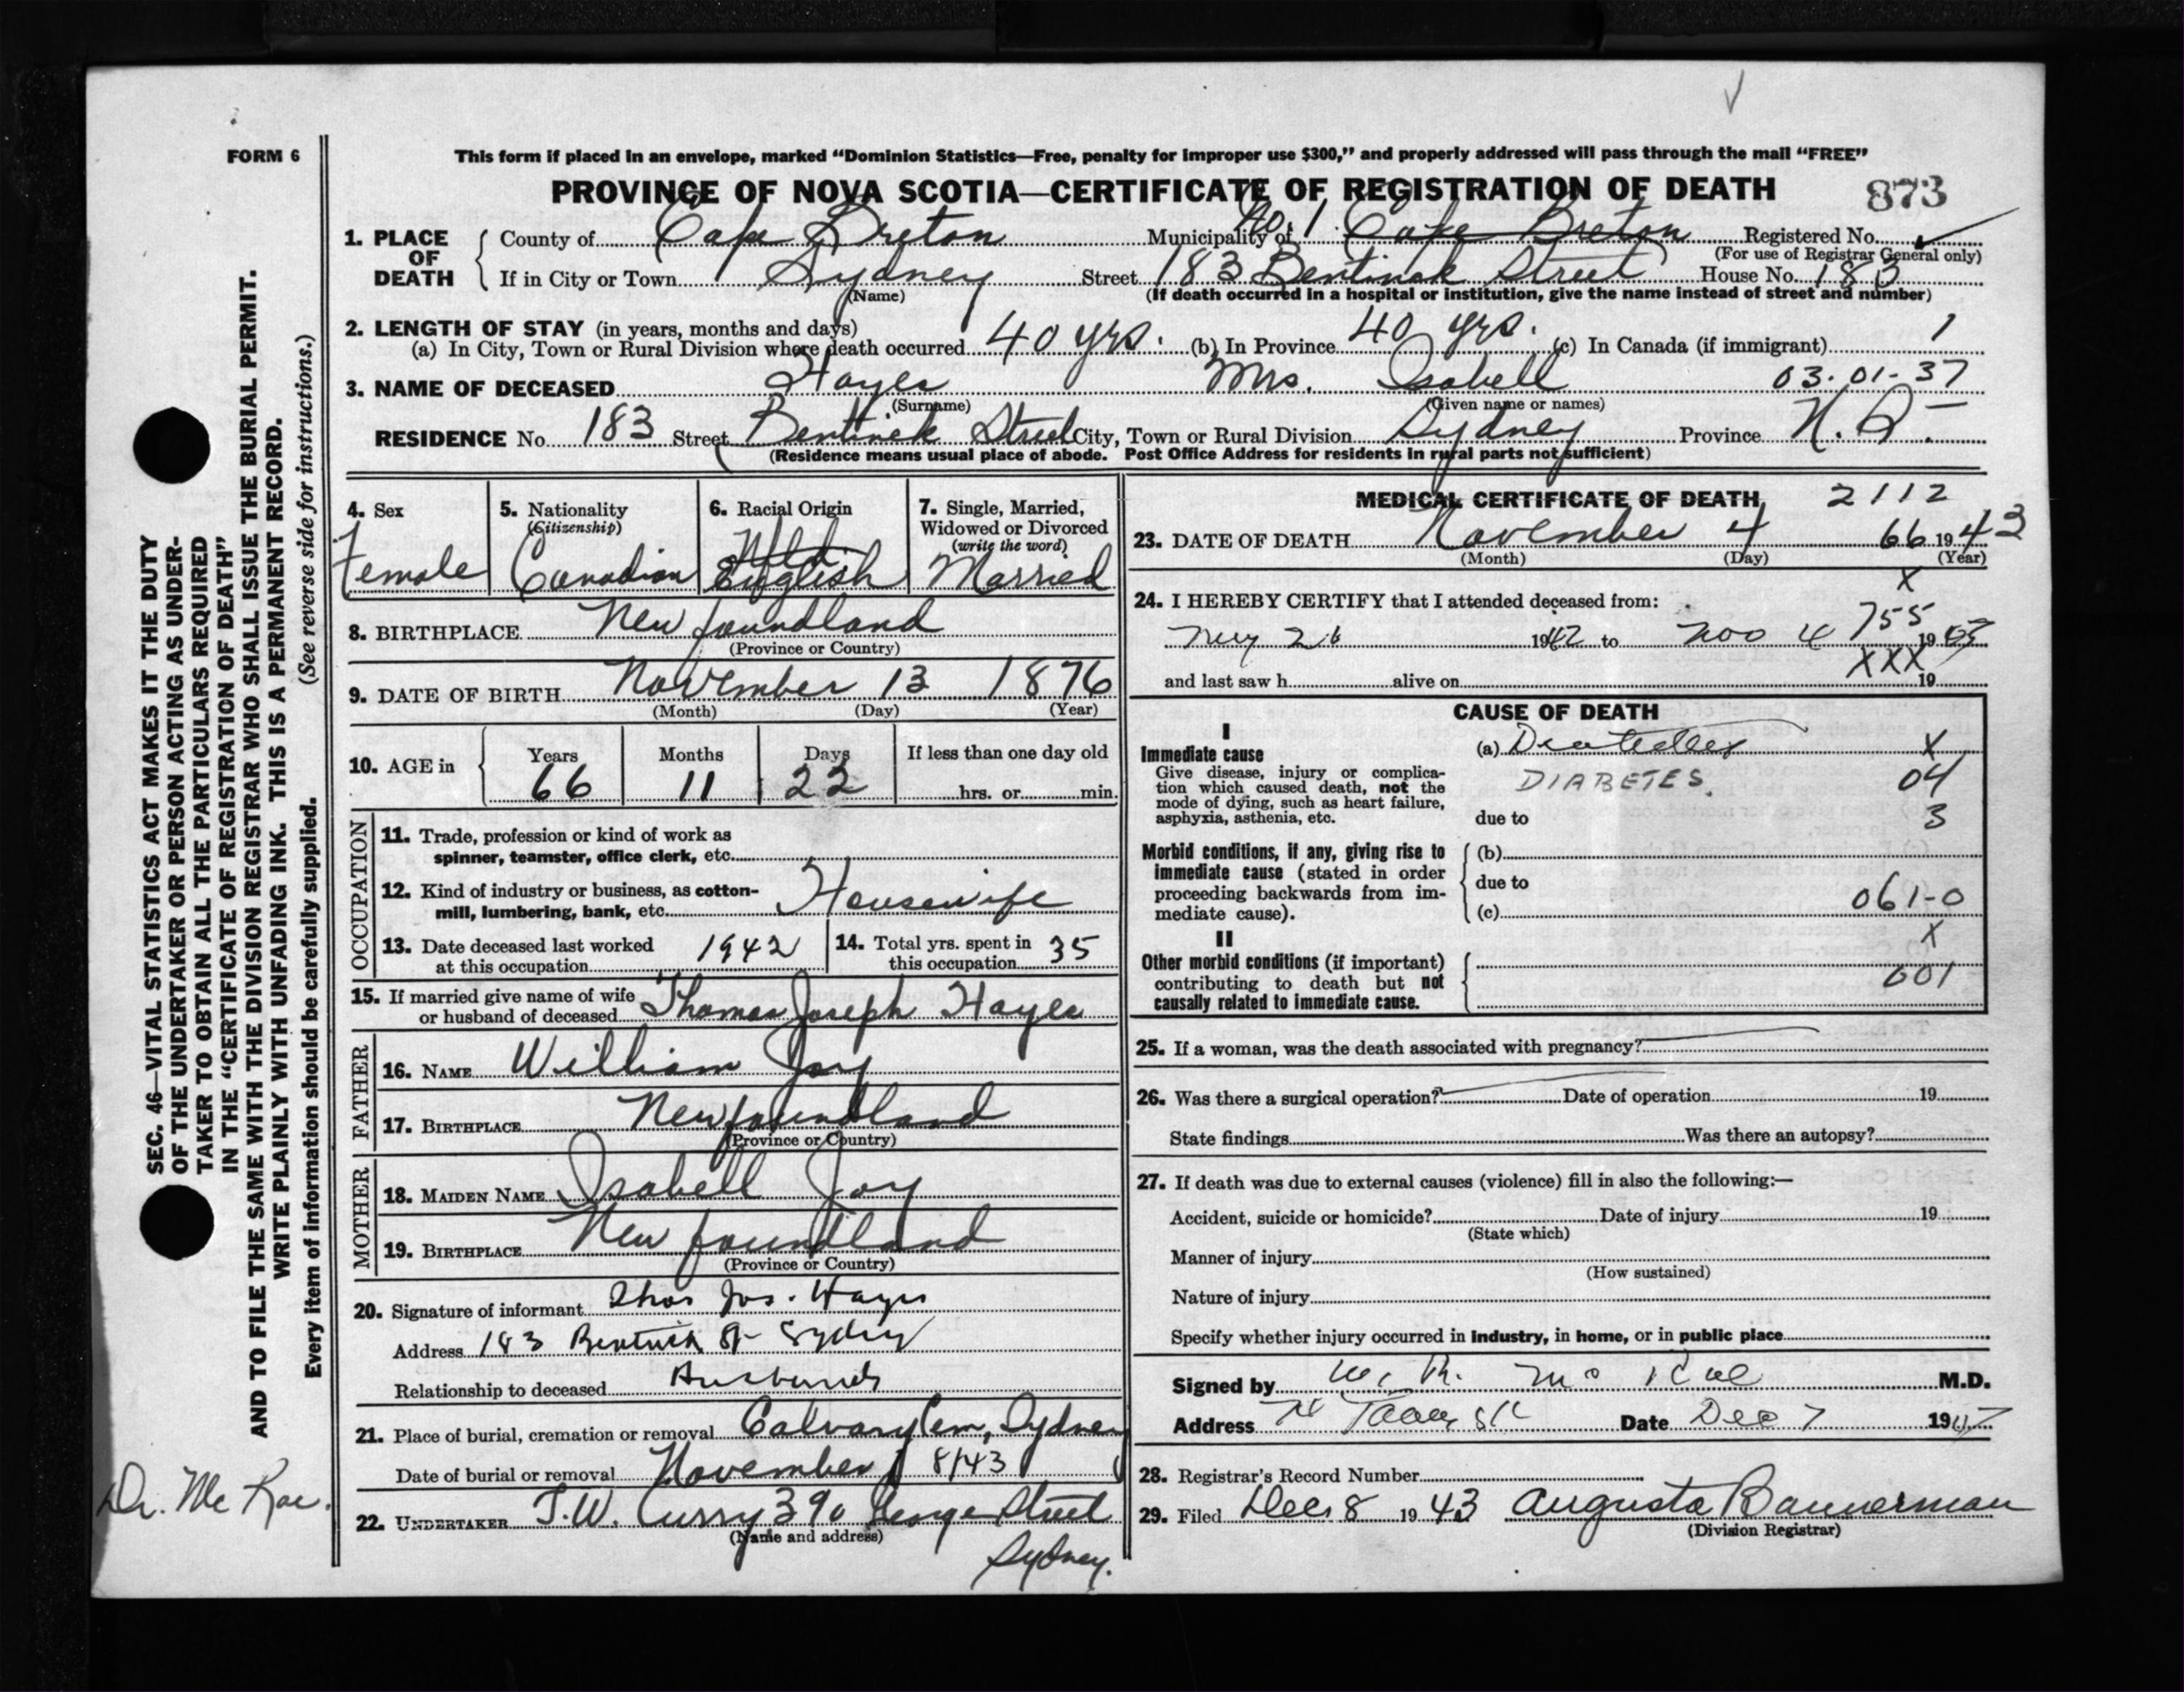 FORM 6
This form if placed in an envelope, marked “Dominion Statistics—Free, penalty for improper use $300,” and properly addressed will pass through the mail “FREE”
PROVINCE OF NOVA SCOTIA—CERTIFICATE OF REGISTRATION OF DEATH 873
1. PLACE OF DEATH County of Cape Breton Municipality of No. 1 Cape Breton Registered No.
(For use of Registrar General only)
If in City or Town Sydney Street 183 Bentinck Street House No. 183
(Name) (If death occurred in a hospital or institution, give the name instead of street and number)
2. LENGTH OF STAY (in years, months and days)
(a) In City, Town or Rural Division where death occurred 40 yrs. (b) In Province 40 yrs. (c) In Canada (if immigrant) 1
3. NAME OF DECEASED Hayes Mrs. Isabell 03-01-37
(Surname) (Given name or names)
RESIDENCE No. 183 Street Bentinck Street City, Town or Rural Division Sydney Province N.S.
(Residence means usual place of abode. Post Office Address for residents in rural parts not sufficient)
4. Sex Female
5. Nationality (Citizenship) Canadian
6. Racial Origin Nfld English
7. Single, Married, Widowed or Divorced (write the word) Married
8. BIRTHPLACE Newfoundland
(Province or Country)
9. DATE OF BIRTH November 13 1876
(Month) (Day) (Year)
10. AGE in Years 66 Months 11 Days 22 If less than one day old
hrs. or min.
OCCUPATION
11. Trade, profession or kind of work as
spinner, teamster, office clerk, etc.
12. Kind of industry or business, as cotton-
mill, lumbering, bank, etc. Housewife
13. Date deceased last worked
at this occupation 1942
14. Total yrs. spent in
this occupation 35
15. If married give name of wife
or husband of deceased Thomas Joseph Hayes
FATHER
16. NAME William Joy
17. BIRTHPLACE Newfoundland
(Province or Country)
MOTHER
18. MAIDEN NAME Isabell Joy
19. BIRTHPLACE Newfoundland
(Province or Country)
20. Signature of informant Thos Jos. Hayes
Address 183 Bentinck St Sydney
Relationship to deceased Husband
21. Place of burial, cremation or removal Calvary Cem, Sydney
Date of burial or removal November 8/43
22. UNDERTAKER T.W. Curry 390 George Street
(Name and address)
Sydney.
MEDICAL CERTIFICATE OF DEATH 2112
23. DATE OF DEATH November 4 66 1943
(Month) (Day) (Year)
X
24. I HEREBY CERTIFY that I attended deceased from:
26 1942 to Nov 4 755 19
and last saw h alive on XXX 19
CAUSE OF DEATH
I
Immediate cause
Give disease, injury or complica-
tion which caused death, not the
mode of dying, such as heart failure,
asphyxia, asthenia, etc.
(a) Diabetes X
DIABETES. 04
due to 3
Morbid conditions, if any, giving rise to
immediate cause (stated in order
proceeding backwards from im-
mediate cause).
(b)
due to
(c) 061-0
II X
Other morbid conditions (if important)
contributing to death but not
causally related to immediate cause.
001
25. If a woman, was the death associated with pregnancy?
26. Was there a surgical operation? Date of operation 19
State findings Was there an autopsy?
27. If death was due to external causes (violence) fill in also the following:—
Accident, suicide or homicide? Date of injury 19
(State which)
Manner of injury
(How sustained)
Nature of injury
Specify whether injury occurred in industry, in home, or in public place
Signed by Mc Rae M.D.
Address Date Dec 7 19
28. Registrar's Record Number
29. Filed Dec. 8 1943 Augusta Bannerman
(Division Registrar)
SEC. 46—VITAL STATISTICS ACT MAKES IT THE DUTY
OF THE UNDERTAKER OR PERSON ACTING AS UNDER-
TAKER TO OBTAIN ALL THE PARTICULARS REQUIRED
IN THE “CERTIFICATE OF REGISTRATION OF DEATH”
AND TO FILE THE SAME WITH THE DIVISION REGISTRAR WHO SHALL ISSUE THE BURIAL PERMIT.
WRITE PLAINLY WITH UNFADING INK. THIS IS A PERMANENT RECORD.
Every item of information should be carefully supplied. (See reverse side for instructions.)
Dr. Mc Rae.